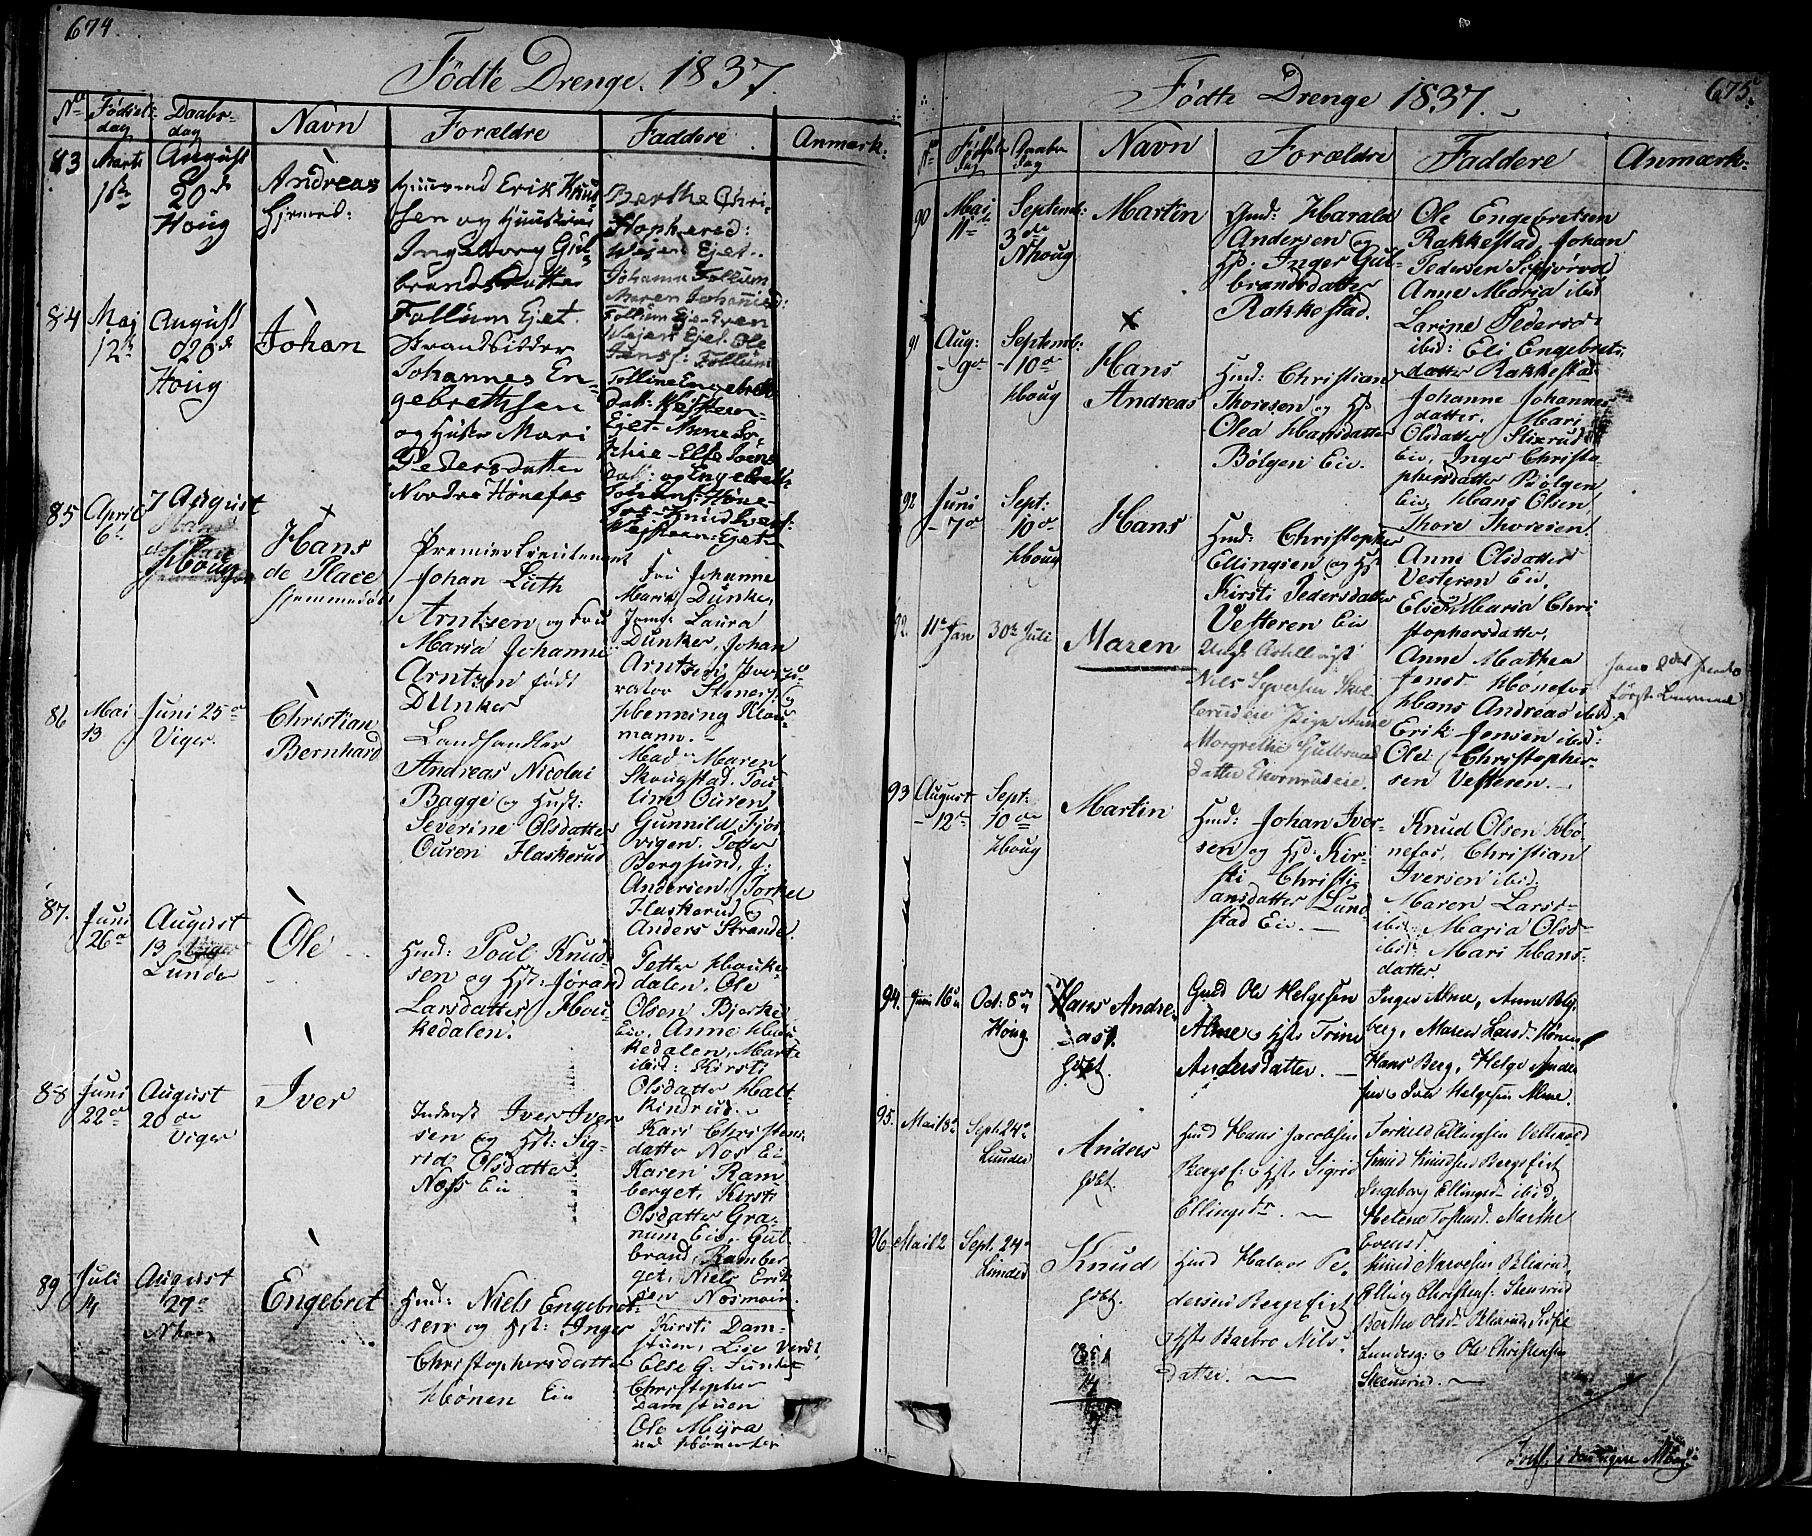 674.
Födte Drenge. 1837.
No Födsels dag Daabs- dag Navn Forældre Faddere Anmærk:
83 Marts 16de August 20de Houg
Andreas
Hjemed:
Huusmand Erik Knud-
sen og Huustrue
Ingeborg Gul-
brandsdatter
Follum Ejet.
Berthe Chri-
stophersd:
Wejen Ejet.
Johanne Follum
Maren Johannesd:
Follum Eje. Even
Wejen Ejet. Ole
Jenss: Follum
84 Maj 12te August 20de Houg
Johan
Strandsidder
Johannes En-
gebrethsen
og Huster Mari
Pedersdatter
Nordre Hönefos
85 April 6te 7 August
Houg
Hans
de Place
hjemmedöbt
Premierlieutenant
Johan Lüth
Arntzen og Frue
Maria Johanne
Arntzen födt
Dunker
Fru Johanne
Marie Dunker,
Jomf: Laura
Dunker, Johan
Arntzen, Procu-
rator Stenersen
Henning Klou-
mann.
86 Mai 13 Juni 25de Viger.
Christian
Bernhard
Landhandler
Andreas Nicolai
Bagge og Hust:
Severine Olsdatter
Ouren Flaskerud
Mad. Maren
Skougstad. Pou-
line Ouren,
Gunnild Fjös-
vigen. Peter
Bergsund, J:
Andersen, Torkel
Flaskerud og
Anders Strande.
87. Juni 26de August 13 Lunder
Ole
Hmd: Poul Knud-
sen og Hst: Jörand
Larsdatter Hou-
kedalen.
Petter Houke-
dalen, Ole
Olsen Bjerke
Eie, Anne Hou-
kedalen, Marte
ibid: Kirsti
Olsdatter Halt-
kindrud.
88 Juni 22de August 20de Viger
Iver
Inderst Iver Iver-
sen og Hst: Sig-
rid Olsdatter
Næs Eie
Kari Christens-
datter Næs Eie
Karen Ram-
berget, Kirsti
Olsdatter Gra-
num Eie, Gul-
brand Ramber-
get, Niels Erik-
sen Nösmoien.
89 Juli 14 August 27de Nhoug
Engebret
Hmd: Niels Engebret-
sen og Hst: Inger
Christophersdatter
Hönen Eie
Kirsti Dam-
stuen, Lise
Else G:
Christopher
Damstuen
Ole Myra
675.
Födte Drenge 1837.
No Födsels Dag Daabs Dag Navn Forældre Faddere Anmærk:
90 Mai 11te Septemb: 3die Nhoug
Martin
Hmd: Harald
Andersen og
Hst: Inger Gul-
brandsdatter
Rakkestad.
Ole Engebretsen
Rakkestad, Johan
Pedersen
Anne Maria ibid
Larine Pedersd:
ibid: Eli Engebrets-
datter Rakkestad
91 Aug: 9de Septemb: 10de Houg
Hans
Andreas
Hmd: Christian
Thoresen og Hst
Olea Hansdatter
Bölgen Eie.
Johanne Johannes-
datter. Mari
Olsdatter Stixrud
Eie, Inger Christo-
phersdatter Bölgen
Eie, Hans Olsen,
Thore Thoresen.
92 Juni 7de Sept: 10de Houg
Hans
Hmd: Christopher
Ellingsen og Hst
Kirsti Pedersdatter
Vesteren Eie
Anne Olsdatter
Vesteren Eie,
Else Maria Chri-
stophersdatter,
Anne Mathea
Jensd Hönefos
Hans Andreas ibid:
Erik Jensen ibid:
Ole Christopher-
sen Vesteren.
92. 11te Jan 30te Juli
Maren
Nils Syversen
Pige Anne
Margrethe Gulbrands-
datter
93 August 12te Sept: 10de Houg
Martin
Hmd: Johan Iver-
sen og Hst: Kir-
sti Christi-
ansdatter Lund-
stad Eie.
Knud Olsen Hö-
nefos, Christian
Iversen ibid:
Maren Larsd:
ibid: Maria Olsd:
ibid: Mari Hans-
datter
94. Juni 16de Oct: 8de Houg
Hans Andre-
as.
hdbt.
Gmd Ole Helgesen
Alme og Hst Trine
Andersdatter.
Inger Alme, Anne
berg, Maren Larsd. Hönen
Hans Berg, Helge Ander-
sen og Iver Helgesen Alme.
95. Mai 13de Sept. 24de Lunder
Anders
hdbt.
Hmd Hans Jacobsen
og Hst Sigrid
Ellingsdr.
Torkild Ellingsen
Knud Knudsen
Ingeborg Ellingsd ibid,
Helene Marthe
Evensd.
96. Mai 12 Sept. 24de Lunder
Knud
hdbt.
Hmd Halvor Pe-
dersen
og Hst Barbro Nils-
datter.
Knud
Elling Christens:
Berthe Olsd
Ole Christensen